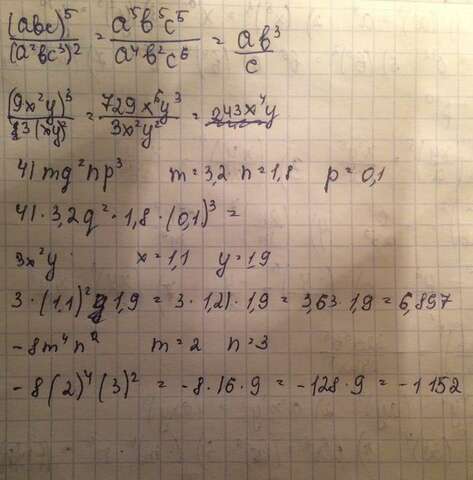 (abc)⁵/(a²bc³)² = a⁵b⁵c⁵/a⁴b²c⁶ = ab³/c
(9x²y)³/3(xy)² = 729x⁶y³/3x²y² = 243x⁴y
41mg²np³ m=3,2 n=1,8 p=0,1
41·3,2g²·1,8·(0,1)³=
3x²y x=1,1 y=1,9
3·(1,1)²·1,9 = 3·1,21·1,9 = 3,63·1,9 = 6,897
-8m⁴n² m=2 n=3
-8(2)⁴(3)² = -8·16·9 = -128·9 = -1152